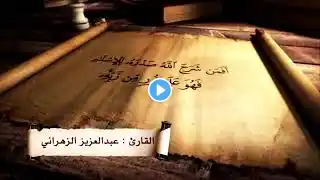 أفمن شرح الله صدره للإسلام
فهو على نور من ربه
القارئ : عبدالعزيز الزهراني